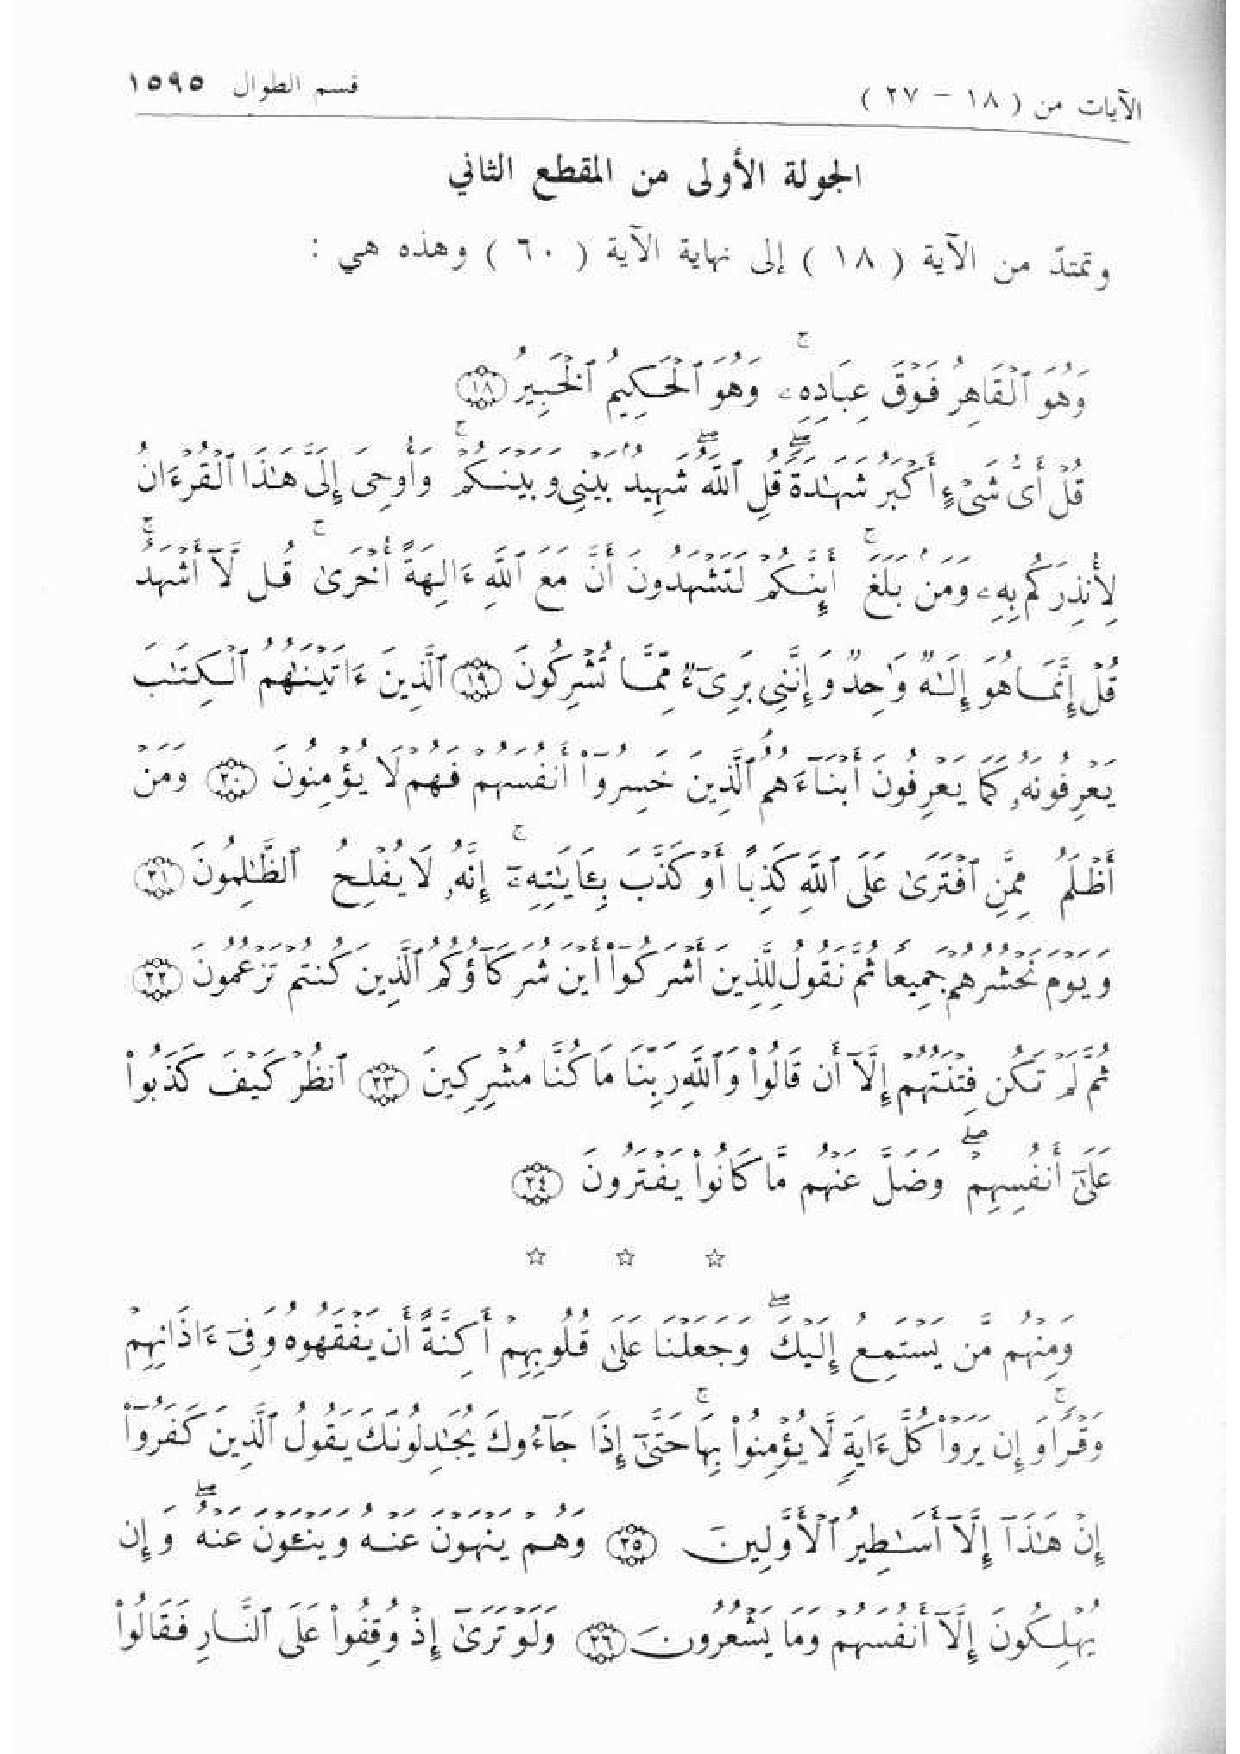 الآيات من ( ١٨ - ٢٧ )
قسم الطوال ١٥٩٥
الجولة الأولى من المقطع الثاني
وتمتدّ من الآية ( ١٨ ) إلى نهاية الآية ( ٦٠ ) وهذه هي :
وَهُوَ ٱلْقَاهِرُ فَوْقَ عِبَادِهِۦ ۚ وَهُوَ ٱلْحَكِيمُ ٱلْخَبِيرُ ﴿١٨﴾
قُلْ أَىُّ شَىْءٍ أَكْبَرُ شَهَٰدَةً ۖ قُلِ ٱللَّهُ ۖ شَهِيدٌۢ بَيْنِى وَبَيْنَكُمْ ۚ وَأُوحِىَ إِلَىَّ هَٰذَا ٱلْقُرْءَانُ
لِأُنذِرَكُم بِهِۦ وَمَنۢ بَلَغَ ۚ أَئِنَّكُمْ لَتَشْهَدُونَ أَنَّ مَعَ ٱللَّهِ ءَالِهَةً أُخْرَىٰ ۚ قُل لَّآ أَشْهَدُ ۚ
قُلْ إِنَّمَا هُوَ إِلَٰهٌ وَٰحِدٌ وَإِنَّنِى بَرِىٓءٌ مِّمَّا تُشْرِكُونَ ﴿١٩﴾ ٱلَّذِينَ ءَاتَيْنَٰهُمُ ٱلْكِتَٰبَ
يَعْرِفُونَهُۥ كَمَا يَعْرِفُونَ أَبْنَآءَهُمُ ۘ ٱلَّذِينَ خَسِرُوٓا۟ أَنفُسَهُمْ فَهُمْ لَا يُؤْمِنُونَ ﴿٢٠﴾ وَمَنْ
أَظْلَمُ مِمَّنِ ٱفْتَرَىٰ عَلَى ٱللَّهِ كَذِبًا أَوْ كَذَّبَ بِـَٔايَٰتِهِۦٓ ۚ إِنَّهُۥ لَا يُفْلِحُ ٱلظَّٰلِمُونَ ﴿٢١﴾
وَيَوْمَ نَحْشُرُهُمْ جَمِيعًا ثُمَّ نَقُولُ لِلَّذِينَ أَشْرَكُوٓا۟ أَيْنَ شُرَكَآؤُكُمُ ٱلَّذِينَ كُنتُمْ تَزْعُمُونَ ﴿٢٢﴾
ثُمَّ لَمْ تَكُن فِتْنَتُهُمْ إِلَّآ أَن قَالُوا۟ وَٱللَّهِ رَبِّنَا مَا كُنَّا مُشْرِكِينَ ﴿٢٣﴾ ٱنظُرْ كَيْفَ كَذَبُوا۟
عَلَىٰٓ أَنفُسِهِمْ ۖ وَضَلَّ عَنْهُم مَّا كَانُوا۟ يَفْتَرُونَ ﴿٢٤﴾
☆ ☆ ☆
وَمِنْهُم مَّن يَسْتَمِعُ إِلَيْكَ ۖ وَجَعَلْنَا عَلَىٰ قُلُوبِهِمْ أَكِنَّةً أَن يَفْقَهُوهُ وَفِىٓ ءَاذَانِهِمْ
وَقْرًا ۚ وَإِن يَرَوْا۟ كُلَّ ءَايَةٍ لَّا يُؤْمِنُوا۟ بِهَا ۚ حَتَّىٰٓ إِذَا جَآءُوكَ يُجَٰدِلُونَكَ يَقُولُ ٱلَّذِينَ كَفَرُوٓا۟
إِنْ هَٰذَآ إِلَّآ أَسَٰطِيرُ ٱلْأَوَّلِينَ ﴿٢٥﴾ وَهُمْ يَنْهَوْنَ عَنْهُ وَيَنْـَٔوْنَ عَنْهُ ۖ وَإِن
يُهْلِكُونَ إِلَّآ أَنفُسَهُمْ وَمَا يَشْعُرُونَ ﴿٢٦﴾ وَلَوْ تَرَىٰٓ إِذْ وُقِفُوا۟ عَلَى ٱلنَّارِ فَقَالُوا۟